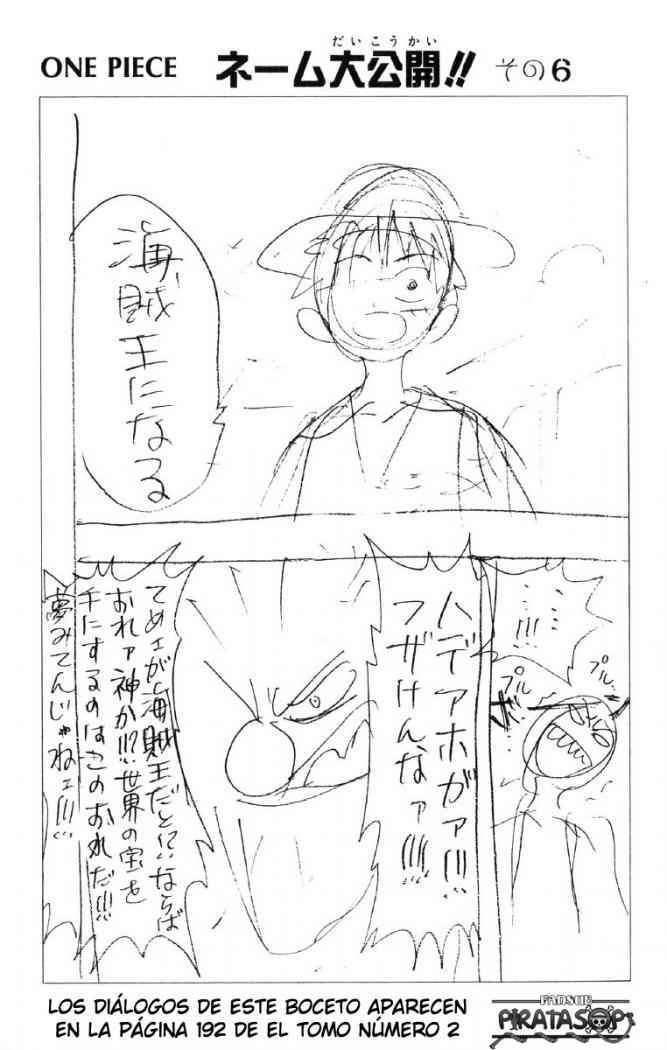 ONE PIECE ネーム大公開!! その6
だいこうかい
海賊
王に
なる
!!!
プルプル
プルプル
ハデアホがァ!!!
フザけんなァ!!!!
てめェが海賊王だと!?ならば
おれァ神か!!?世界の宝を
手にするのはこのおれだ!!!
夢みてんじゃねェ!!!!
LOS DIÁLOGOS DE ESTE BOCETO APARECEN
EN LA PÁGINA 192 DE EL TOMO NÚMERO 2
FANSUB
PIRATASOP